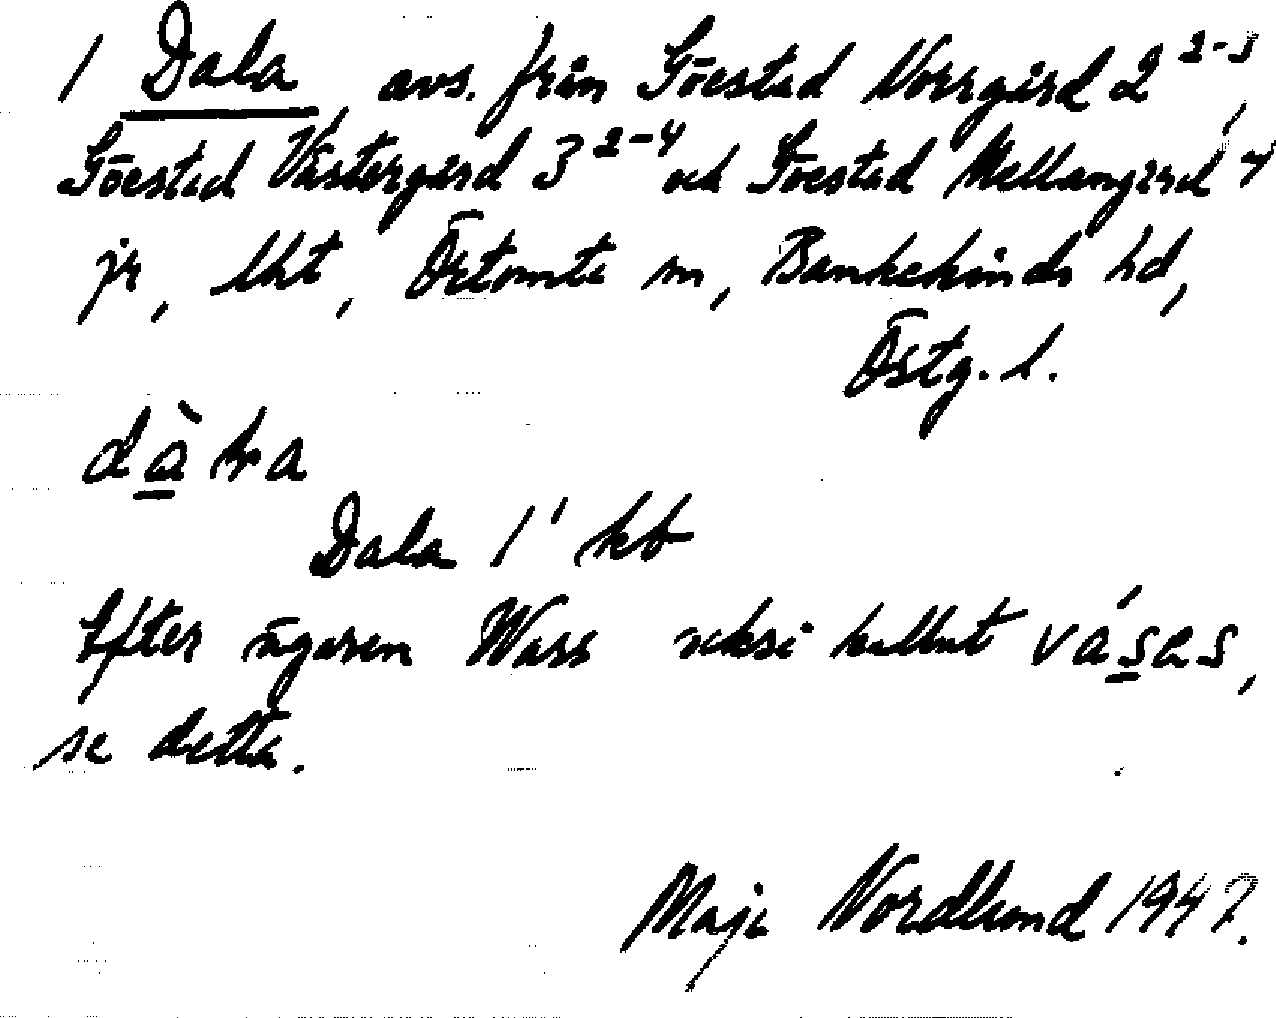 1 Dala, avs. från Göestad Norrgård 2 2-3,
Göestad Västergård 3 2-4 och Göestad Mellangård 4
jr, lht, Örtomta sn, Bankekinds hd,
Östg. l.
Dala 1' kb
Efter ägaren Wass också kallat vásas,
se detta.
Maja Nordlund 1947.